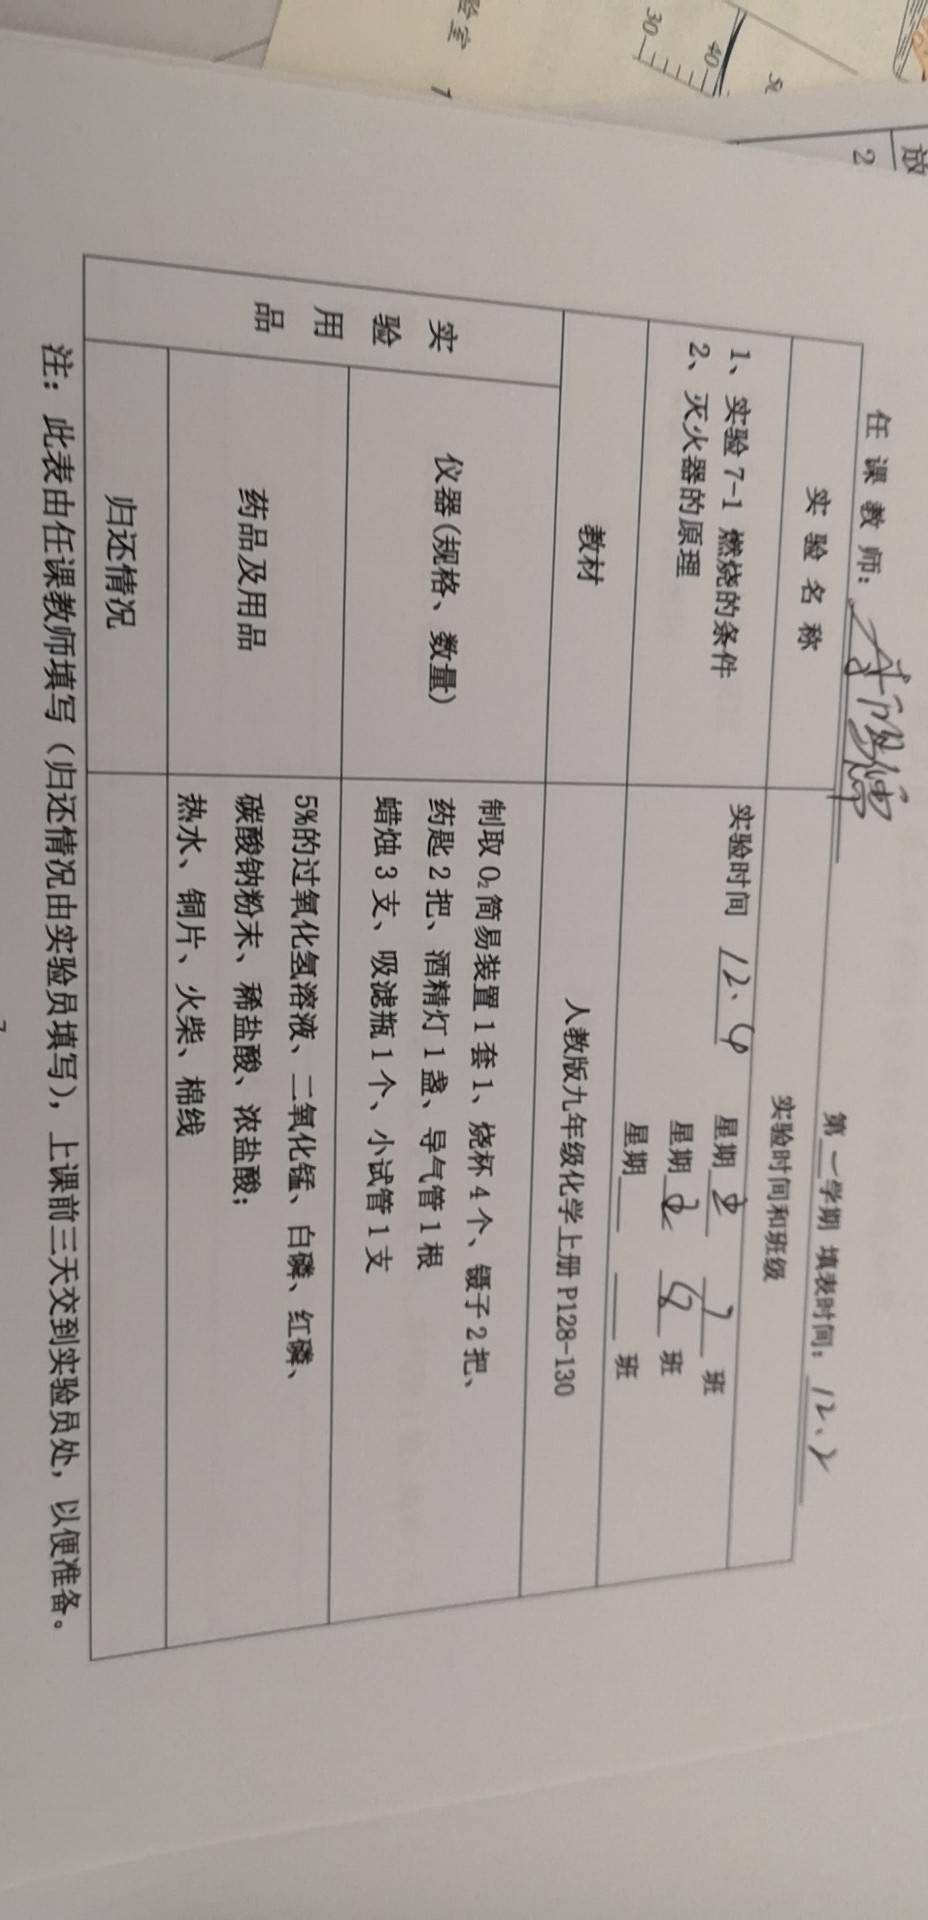 任课教师：
第一学期 填表时间：12、2
实验名称
实验时间和班级
1、实验 7-1 燃烧的条件
2、灭火器的原理
实验时间 12、4 星期 班
星期 班
星期 班
教材
人教版九年级化学上册 P128-130
实验用品
仪器(规格、数量)
制取 O₂ 简易装置 1 套 1、烧杯 4 个、镊子 2 把、
药匙 2 把、酒精灯 1 盏、导气管 1 根
蜡烛 3 支、吸滤瓶 1 个、小试管 1 支
药品及用品
5%的过氧化氢溶液、二氧化锰、白磷、红磷、
碳酸钠粉末、稀盐酸、浓盐酸；
热水、铜片、火柴、棉线
归还情况
注：此表由任课教师填写（归还情况由实验员填写），上课前三天交到实验员处，以便准备。
30
40
放
2